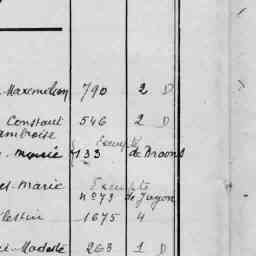 Maxemilien 790 2 D
Constant 546 2 D
Ambroise
Exempté
Marie 133 de Broons
Marie Exempté
n° 73 de Jugon
Celestin 1675 4
Modeste 263 1 D